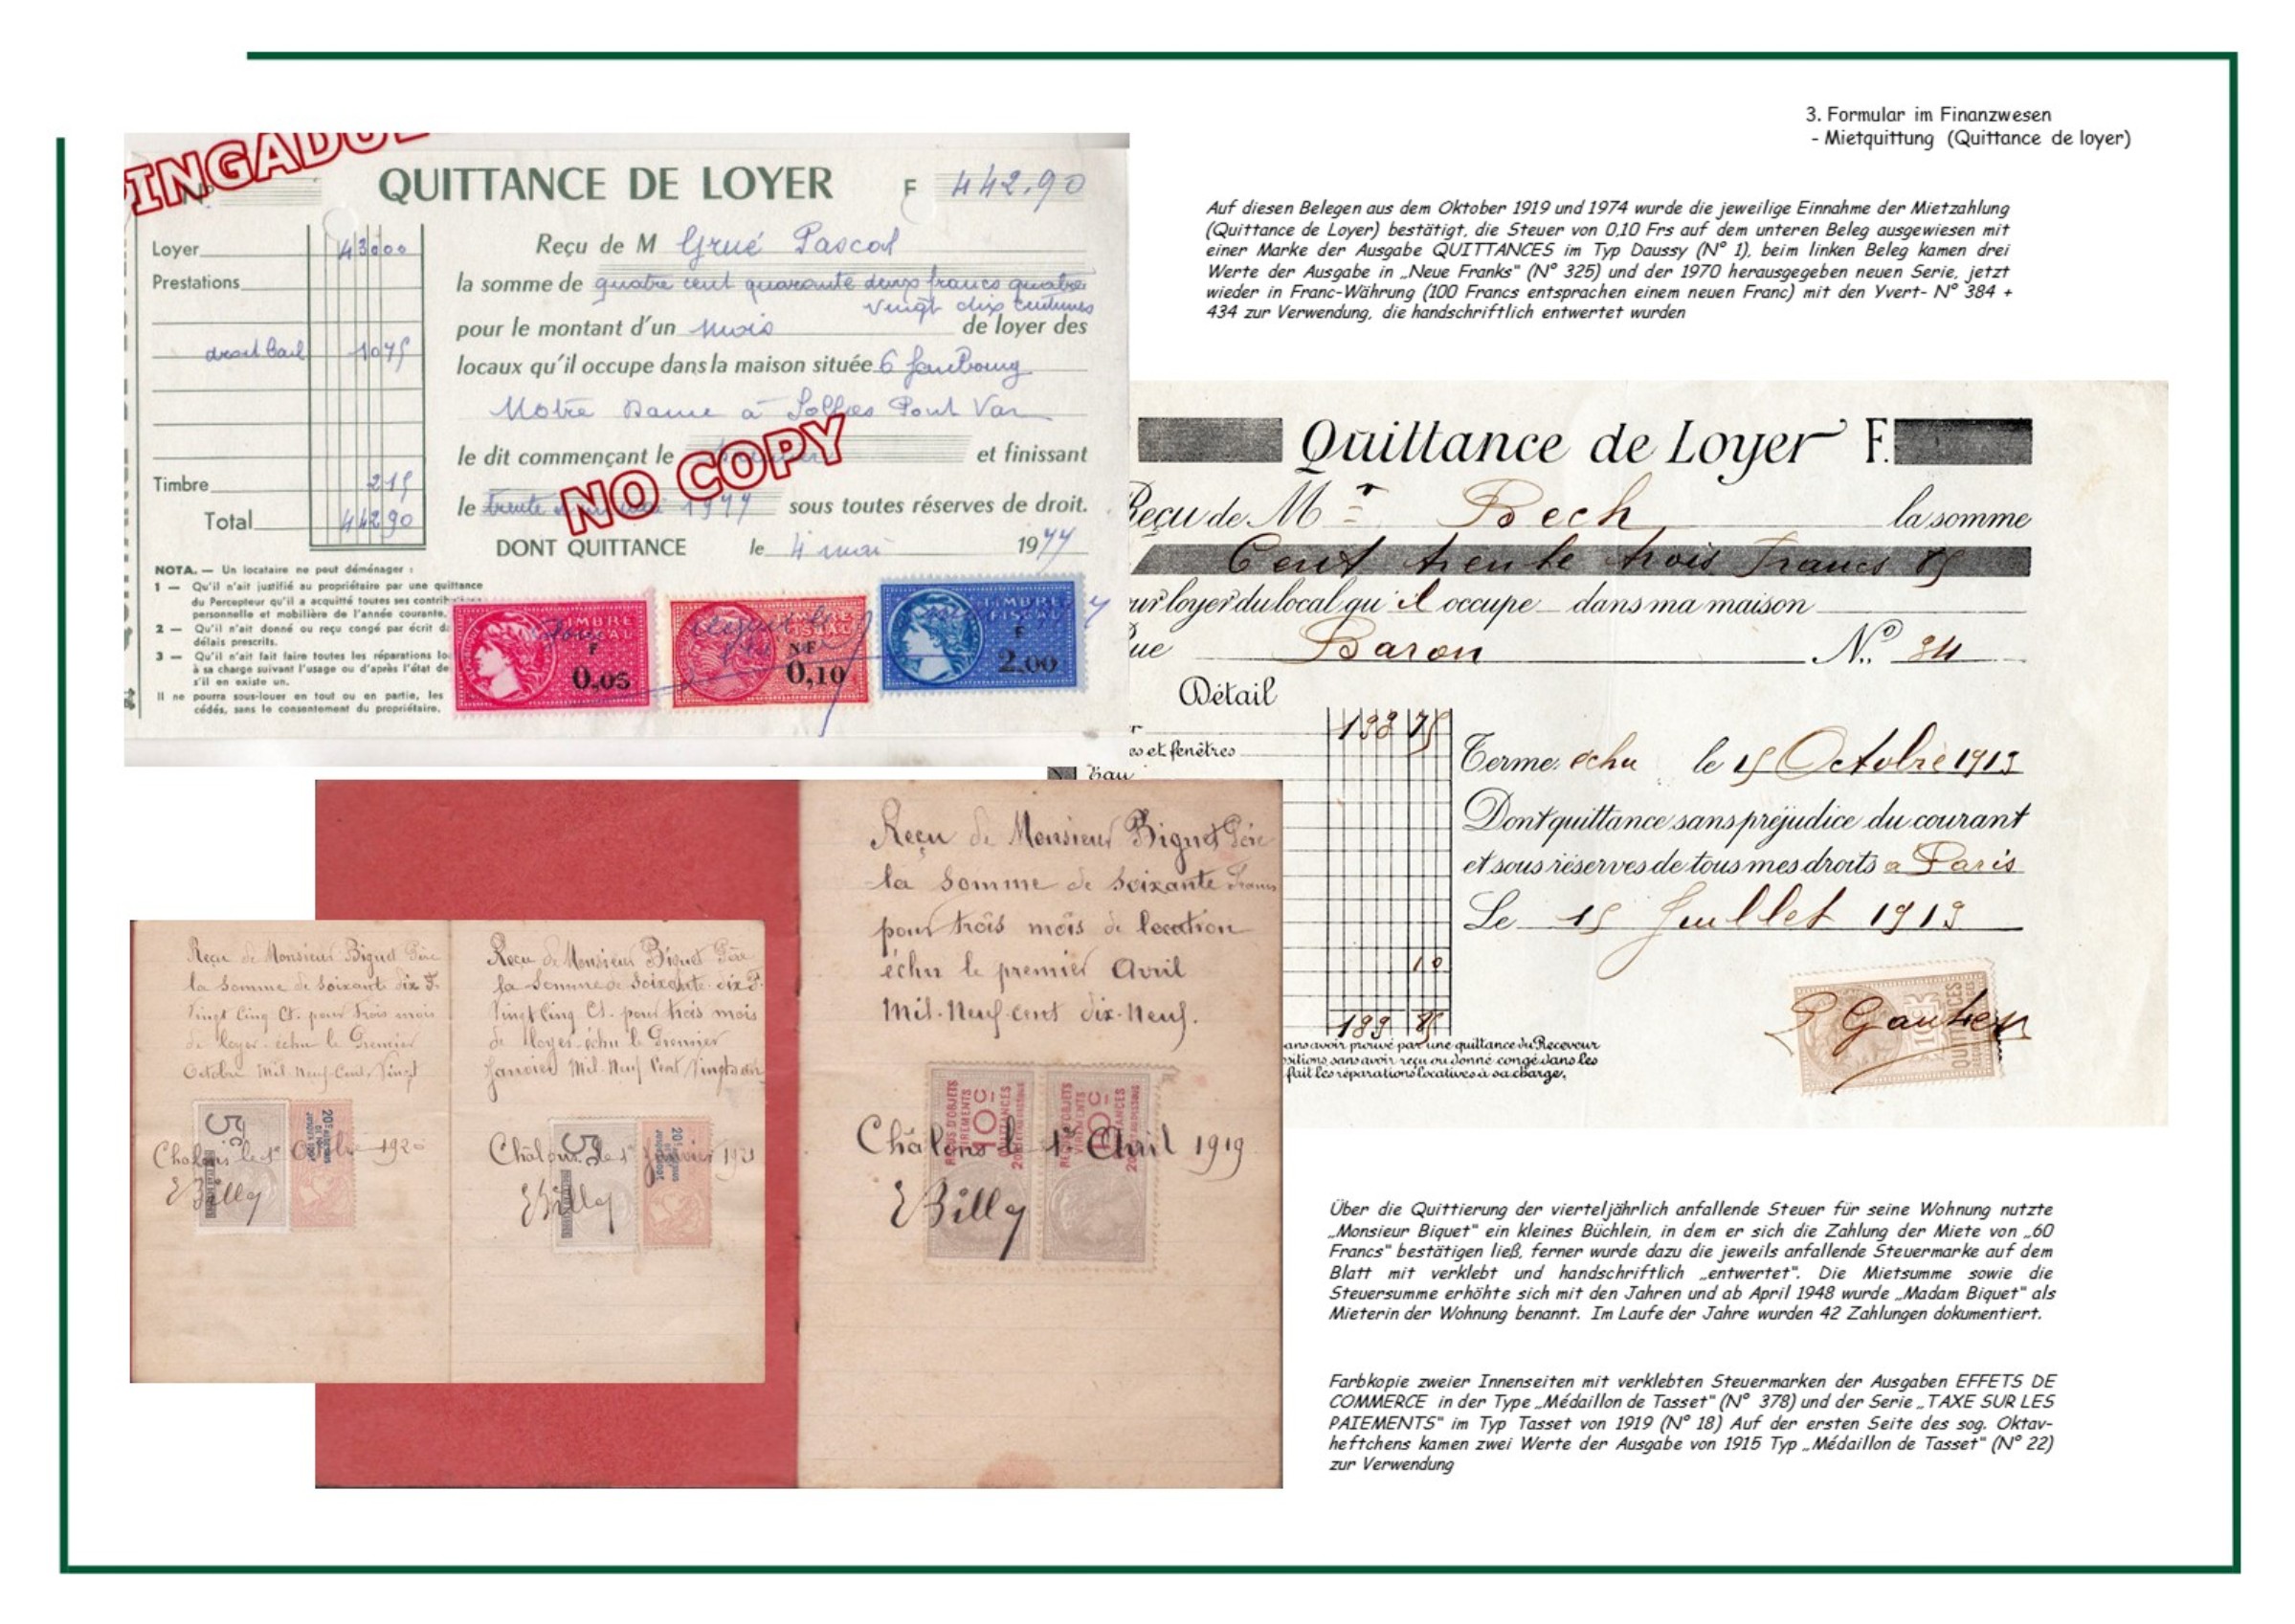 3. Formular im Finanzwesen
- Mietquittung (Quittance de loyer)
Auf diesen Belegen aus dem Oktober 1919 und 1974 wurde die jeweilige Einnahme der Mietzahlung
(Quittance de Loyer) bestätigt, die Steuer von 0,10 Frs auf dem unteren Beleg ausgewiesen mit
einer Marke der Ausgabe QUITTANCES im Typ Daussy (N° 1), beim linken Beleg kamen drei
Werte der Ausgabe in „Neue Franks“ (N° 325) und der 1970 herausgegeben neuen Serie, jetzt
wieder in Franc-Währung (100 Francs entsprachen einem neuen Franc) mit den Yvert- N° 384 +
434 zur Verwendung, die handschriftlich entwertet wurden
N°
QUITTANCE DE LOYER F 442,90
Loyer 43000
Prestations
droit bail 1075
Timbre 215
Total 44290
Reçu de M Grué Pascal
la somme de quatre cent quarante deux francs quatre
vingt dix centimes
pour le montant d'un mois de loyer des
locaux qu'il occupe dans la maison située 6 faubourg
Notre Dame à Solliès Pont Var
le dit commençant le et finissant
le trente sous toutes réserves de droit.
DONT QUITTANCE le 4 mai 1977
NO COPY
NOTA. — Un locataire ne peut déménager :
1 — Qu'il n'ait justifié au propriétaire par une quittance
du Percepteur qu'il a acquitté toutes ses
personnelle et mobilière de l'année courante.
2 — Qu'il n'ait donné ou reçu congé par écrit
délais prescrits.
3 — Qu'il n'ait fait faire toutes les réparations
à sa charge suivant l'usage ou d'après l'état de
s'il en existe un.
Il ne pourra sous-louer en tout ou en partie, les
cédés, sans le consentement du propriétaire.
F
0,05
NF
0,10
TIMBRE
FISCAL
F
2,00
Quittance de Loyer F.
Reçu de Mr Bech la somme
Cent trente trois Francs 85
loyer du local qu'il occupe dans ma maison
Rue Baron N° 34
Détail
133 75
et fenêtres
Eau
10
133 85
Terme échu le 15 Octobre 1919
Dont quittance sans préjudice du courant
et sous réserves de tous mes droits a Paris
Le 15 Juillet 1919
avoir prouvé par une quittance du Receveur
sans avoir reçu ou donné congé dans les
fait les réparations locatives à sa charge.
10c
QUITTANCES
Reçu de Monsieur Biquet Père
la Somme de Soixante Francs
pour trois mois de location
échu le premier Avril
Mil-Neuf-cent dix-Neuf.
10c
Châlons le 1er Avril 1919
E Billy
Reçu de Monsieur Biquet Père
la Somme de Soixante dix F.
Vingt Cinq Ct. pour Trois mois
de loyer échu le Premier
Octobre Mil-Neuf-Cent Vingt
5c
Châlons le 1er Octobre 1920
E Billy
Reçu de Monsieur Biquet Père
la Somme de Soixante dix F.
Vingt Cinq Ct. pour trois mois
de loyer échu le Premier
Janvier Mil-Neuf Cent
5c
Châlons le 1er Janvier 1921
E Billy
Über die Quittierung der vierteljährlich anfallende Steuer für seine Wohnung nutzte
„Monsieur Biquet“ ein kleines Büchlein, in dem er sich die Zahlung der Miete von „60
Francs“ bestätigen ließ, ferner wurde dazu die jeweils anfallende Steuermarke auf dem
Blatt mit verklebt und handschriftlich „entwertet“. Die Mietsumme sowie die
Steuersumme erhöhte sich mit den Jahren und ab April 1948 wurde „Madam Biquet“ als
Mieterin der Wohnung benannt. Im Laufe der Jahre wurden 42 Zahlungen dokumentiert.
Farbkopie zweier Innenseiten mit verklebten Steuermarken der Ausgaben EFFETS DE
COMMERCE in der Type „Médaillon de Tasset“ (N° 378) und der Serie „TAXE SUR LES
PAIEMENTS“ im Typ Tasset von 1919 (N° 18) Auf der ersten Seite des sog. Oktav-
heftchens kamen zwei Werte der Ausgabe von 1915 Typ „Médaillon de Tasset“ (N° 22)
zur Verwendung